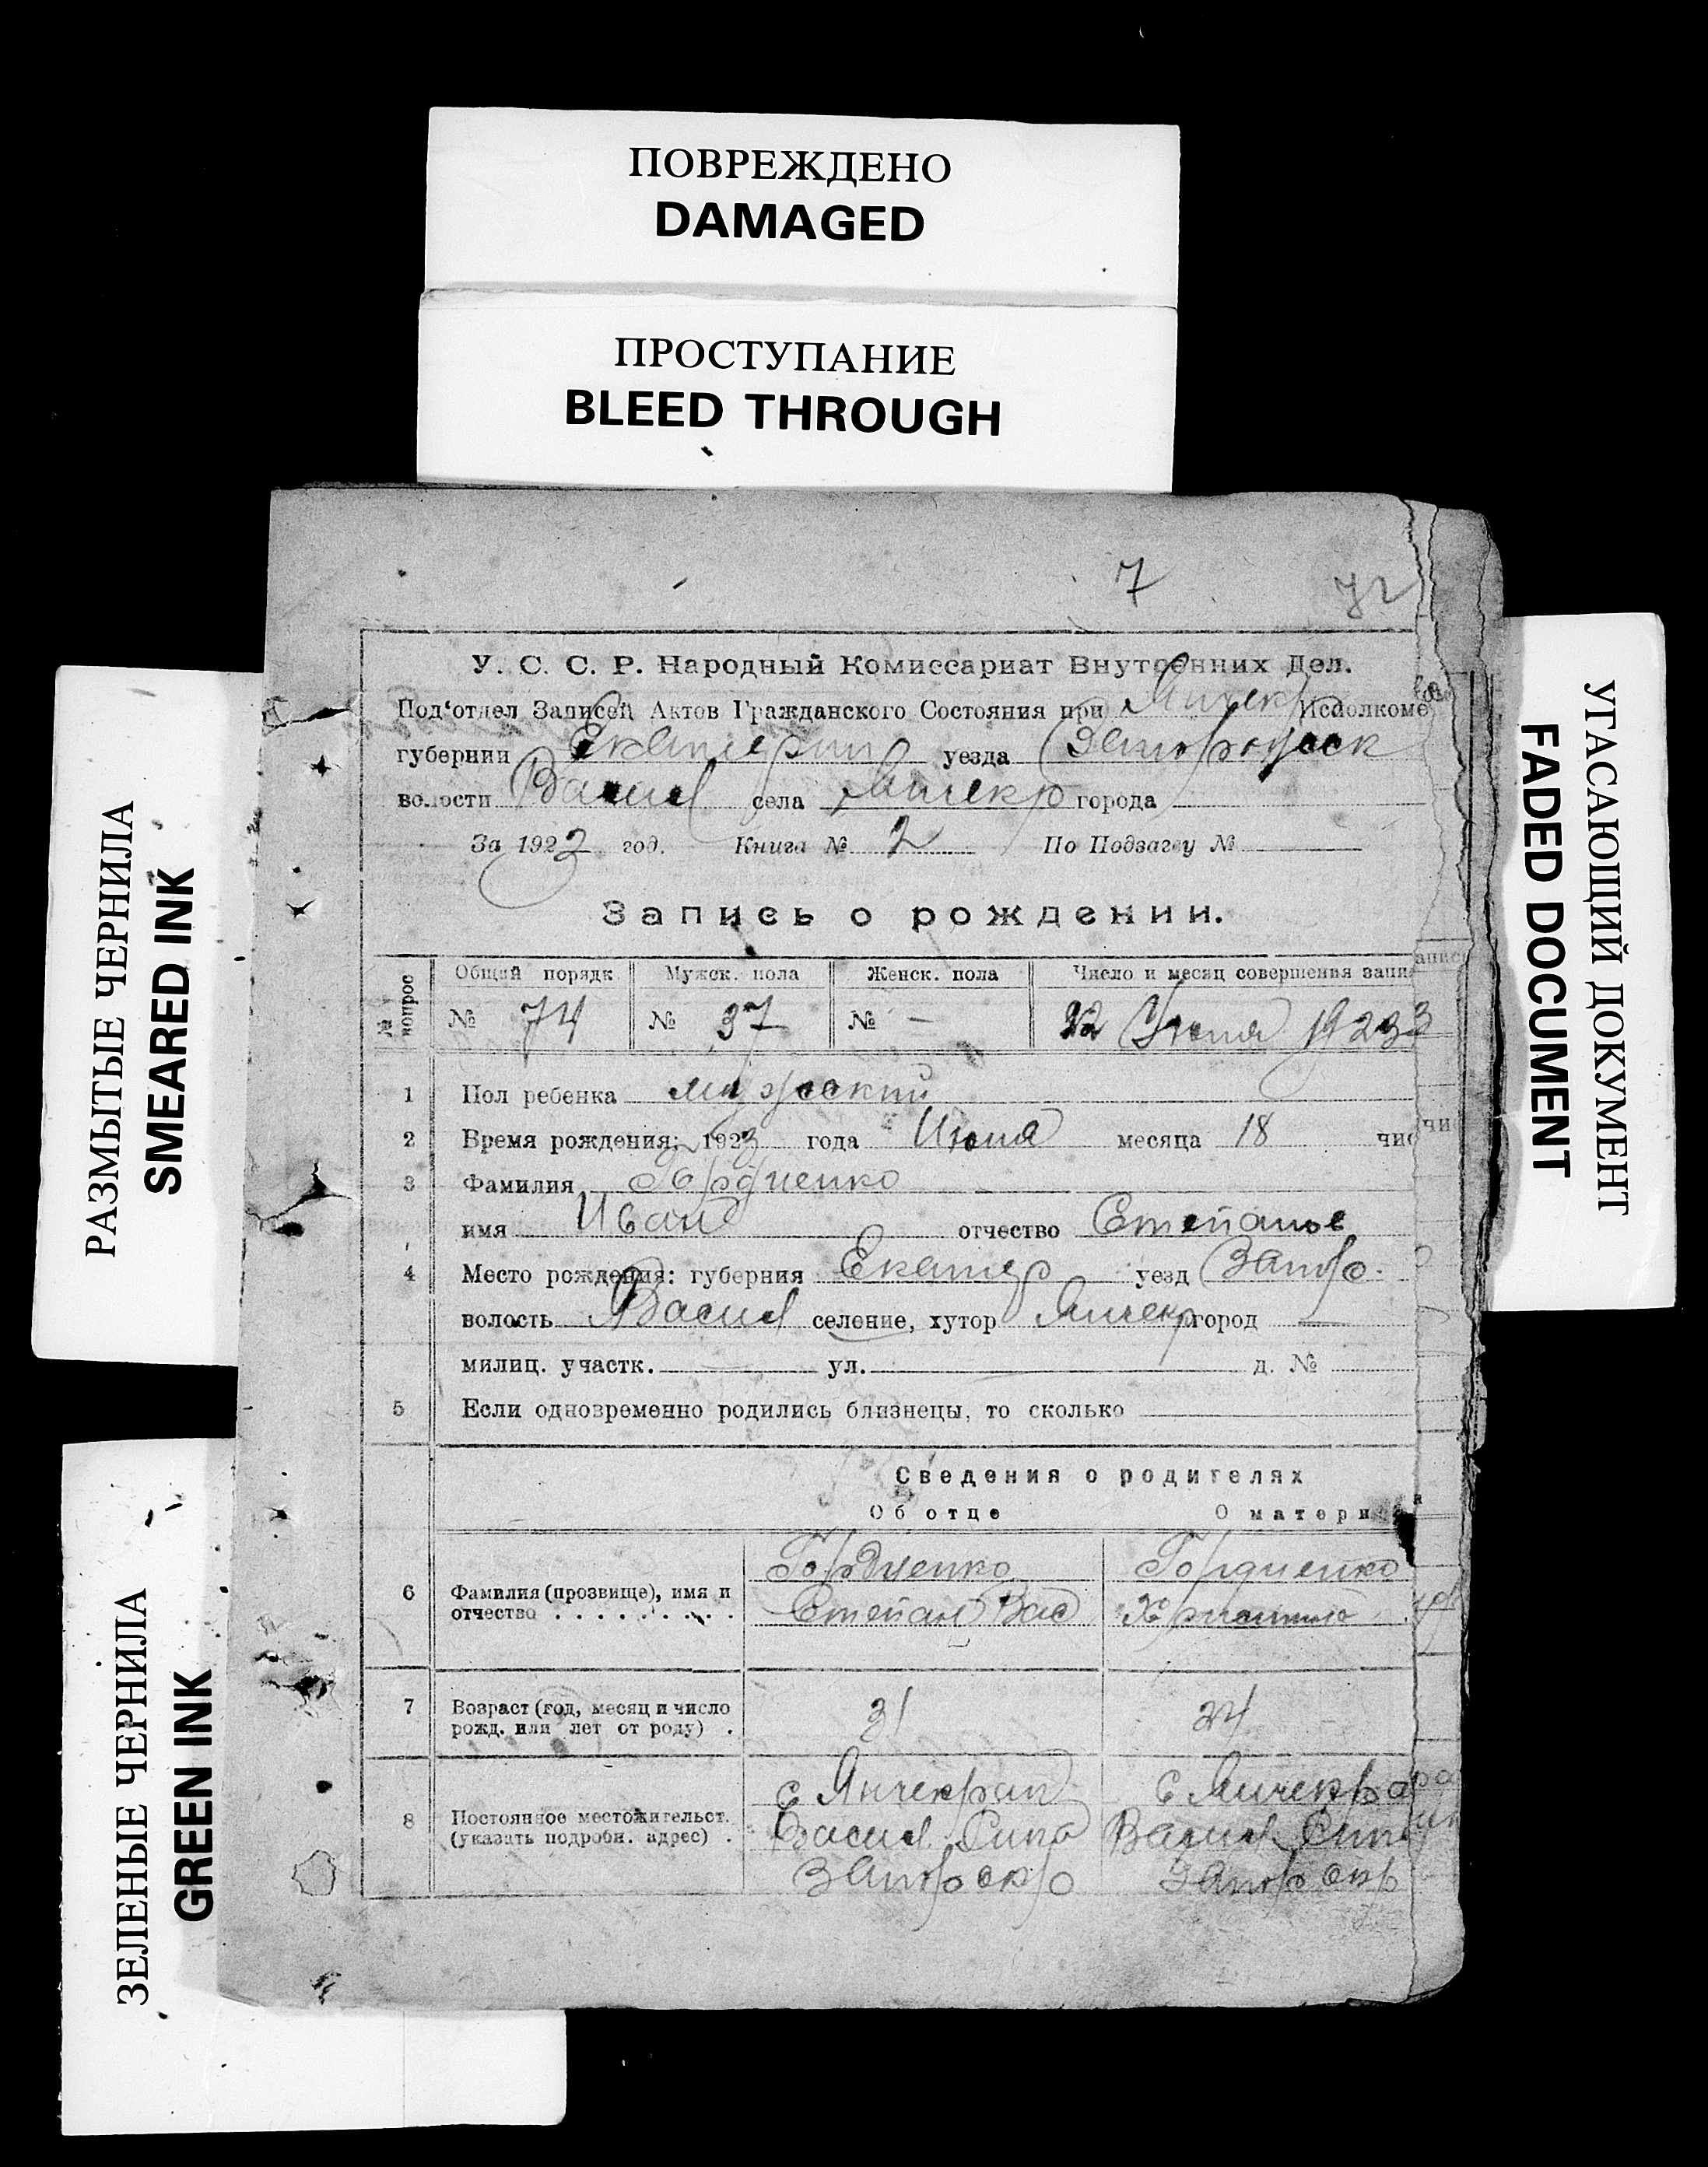 ПОВРЕЖДЕНО
DAMAGED
ПРОСТУПАНИЕ
BLEED THROUGH
РАЗМЫТЫЕ ЧЕРНИЛА
SMEARED INK
ЗЕЛЕНЫЕ ЧЕРНИЛА
GREEN INK
УГАСАЮЩИЙ ДОКУМЕНТ
FADED DOCUMENT
7
У. С. С. Р. Народный Комиссариат Внутренних Дел.
Под'отдел Записей Актов Гражданского Состояния при Янчекр Исполкоме
губернии Екатерин уезда Запорожск
волости Васил села Янчекр города
За 1923 год. Книга № 2 По Подзагсу №
Запись о рождении.
№ вопрос Общий порядк Мужск. пола Женск. пола Число и месяц совершения запи
№ 74 № 37 № - 22 Июня 1923
1 Пол ребенка мужский
2 Время рождения: 1923 года Июня месяца 18 чис
3 Фамилия Гордиенко
имя Иван отчество Степанов
4 Место рождения: губерния Екатер уезд Запор.
волость Васил селение, хутор Янчекр город
милиц. участк. ул. д. №
5 Если одновременно родились близнецы, то сколько
Сведения о родителях
Об отце О матери
6 Фамилия (прозвище), имя и Гордиенко Гордиенко
отчество . . . . . . . . . Степан Вас
7 Возраст (год, месяц и число 31 24
рожд. или лет от роду) .
8 с Янчекрак с Янчекра
Постоянное местожительст. Васил
(указать подробн. адрес) . Запор окр Запор окр